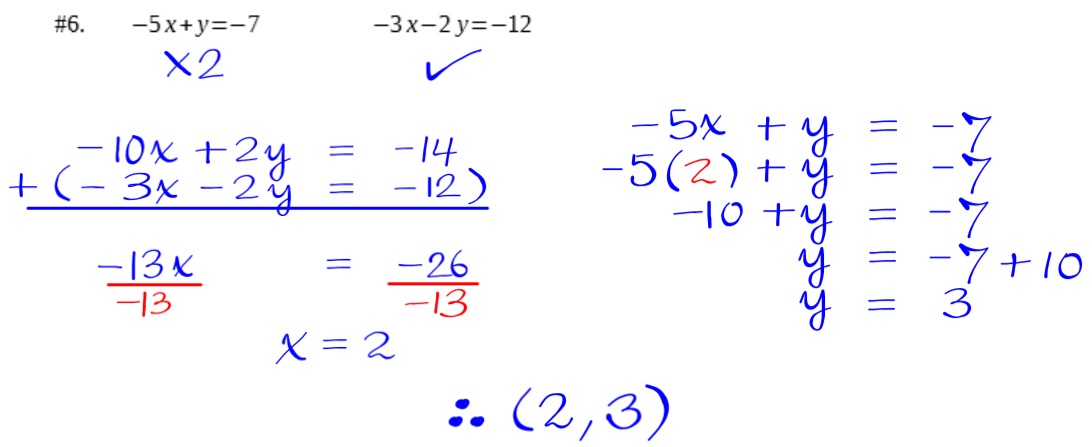 #6. −5x+y=−7 −3x−2y=−12
×2 ✓
−10x + 2y = −14
+ (−3x − 2y = −12)
−13x = −26
−13 −13
x = 2
−5x + y = −7
−5(2) + y = −7
−10 + y = −7
y = −7 + 10
y = 3
∴ (2, 3)